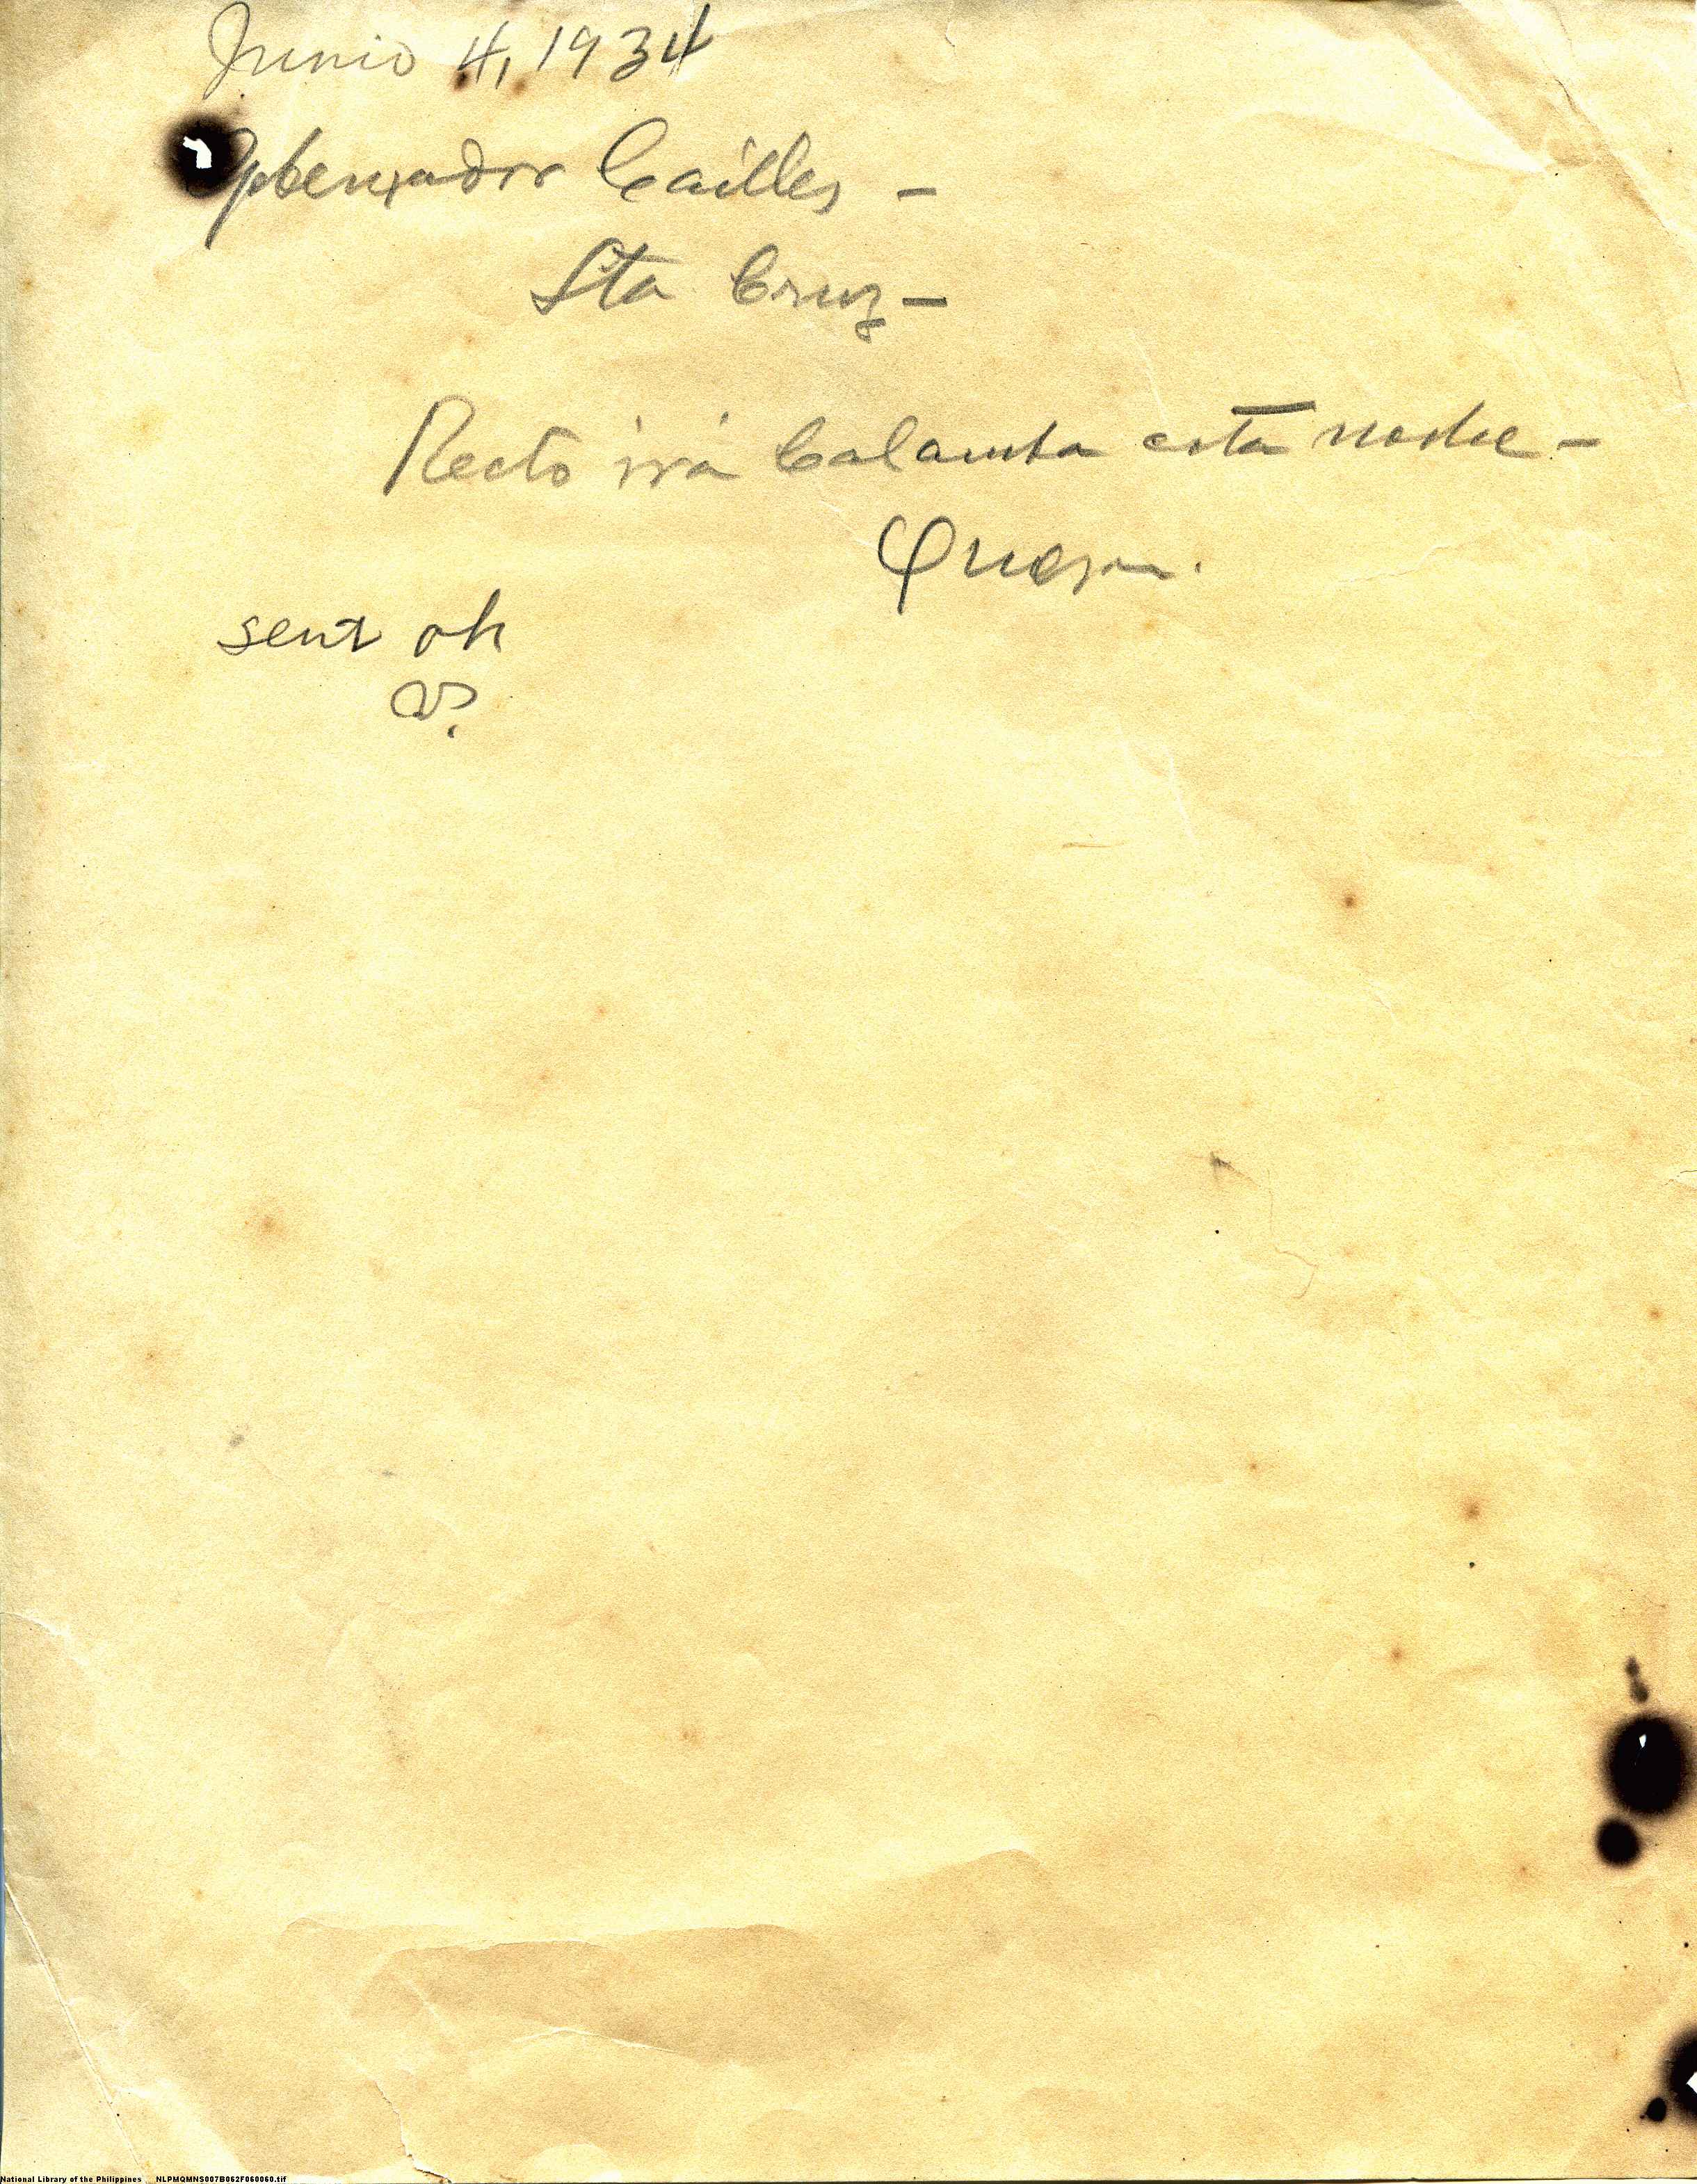 Junio 4, 1934
Gobernador Cailles -
Sta Cruz -
Recto irá Calamba esta noche -
Quezon.
sent oh
National Library of the Philippines NLPMQMNS007B062F060060.tif